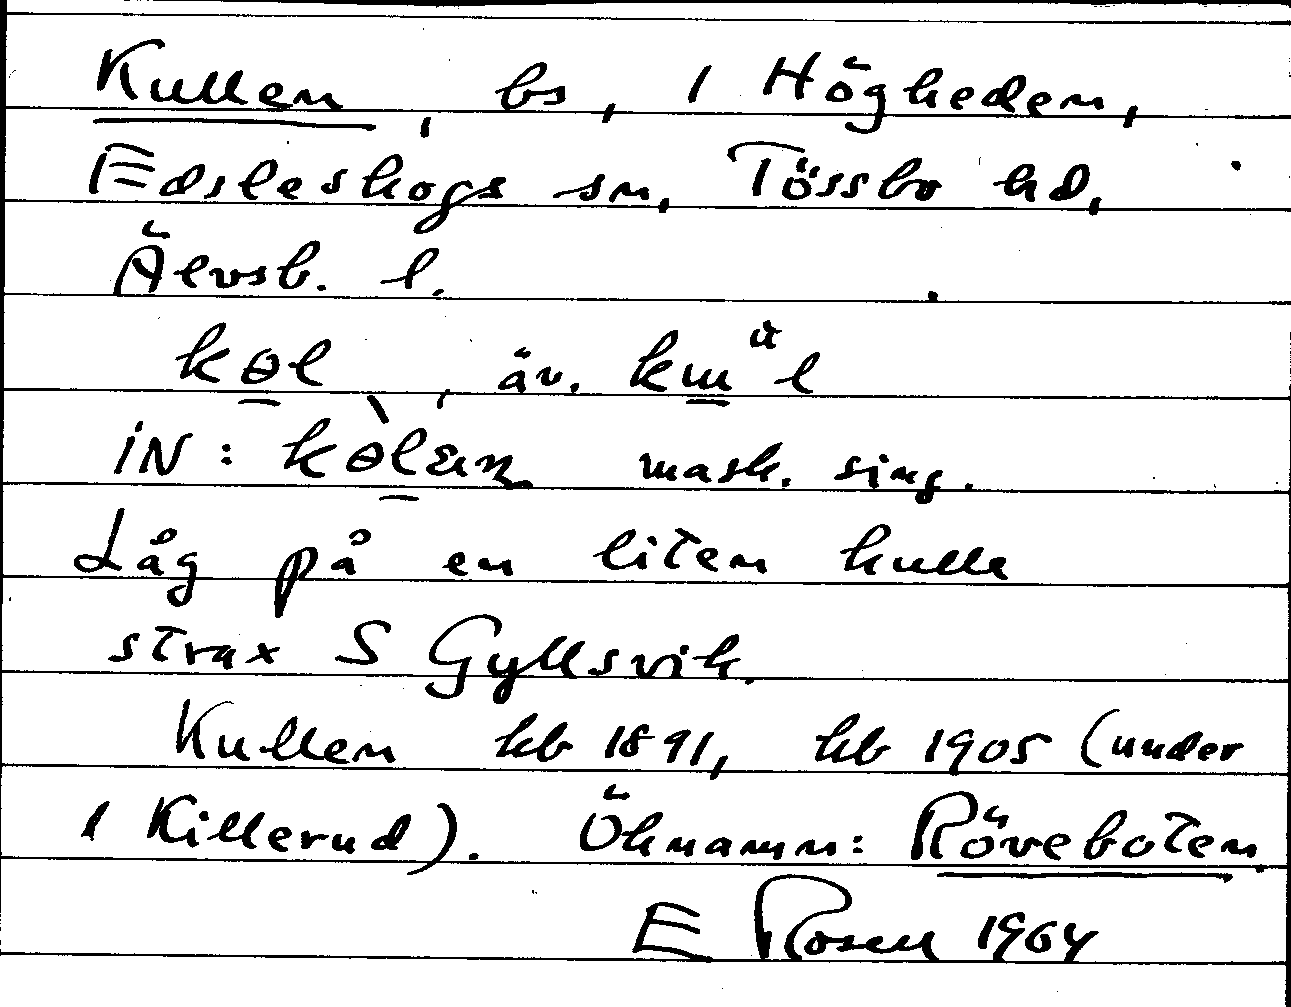 Kullen, bs, 1 Högheden,
Edsleskogs sn, Tössbo hd,
Älvsb. l.
kɵl, äv.
iN: mask. sing.
Låg på en liten kulle
strax S Gyllsvik.
Kullen hb 1891, hb 1905 (under
1 Killerud). Öknamn: Röveboten.
E Rosell 1964